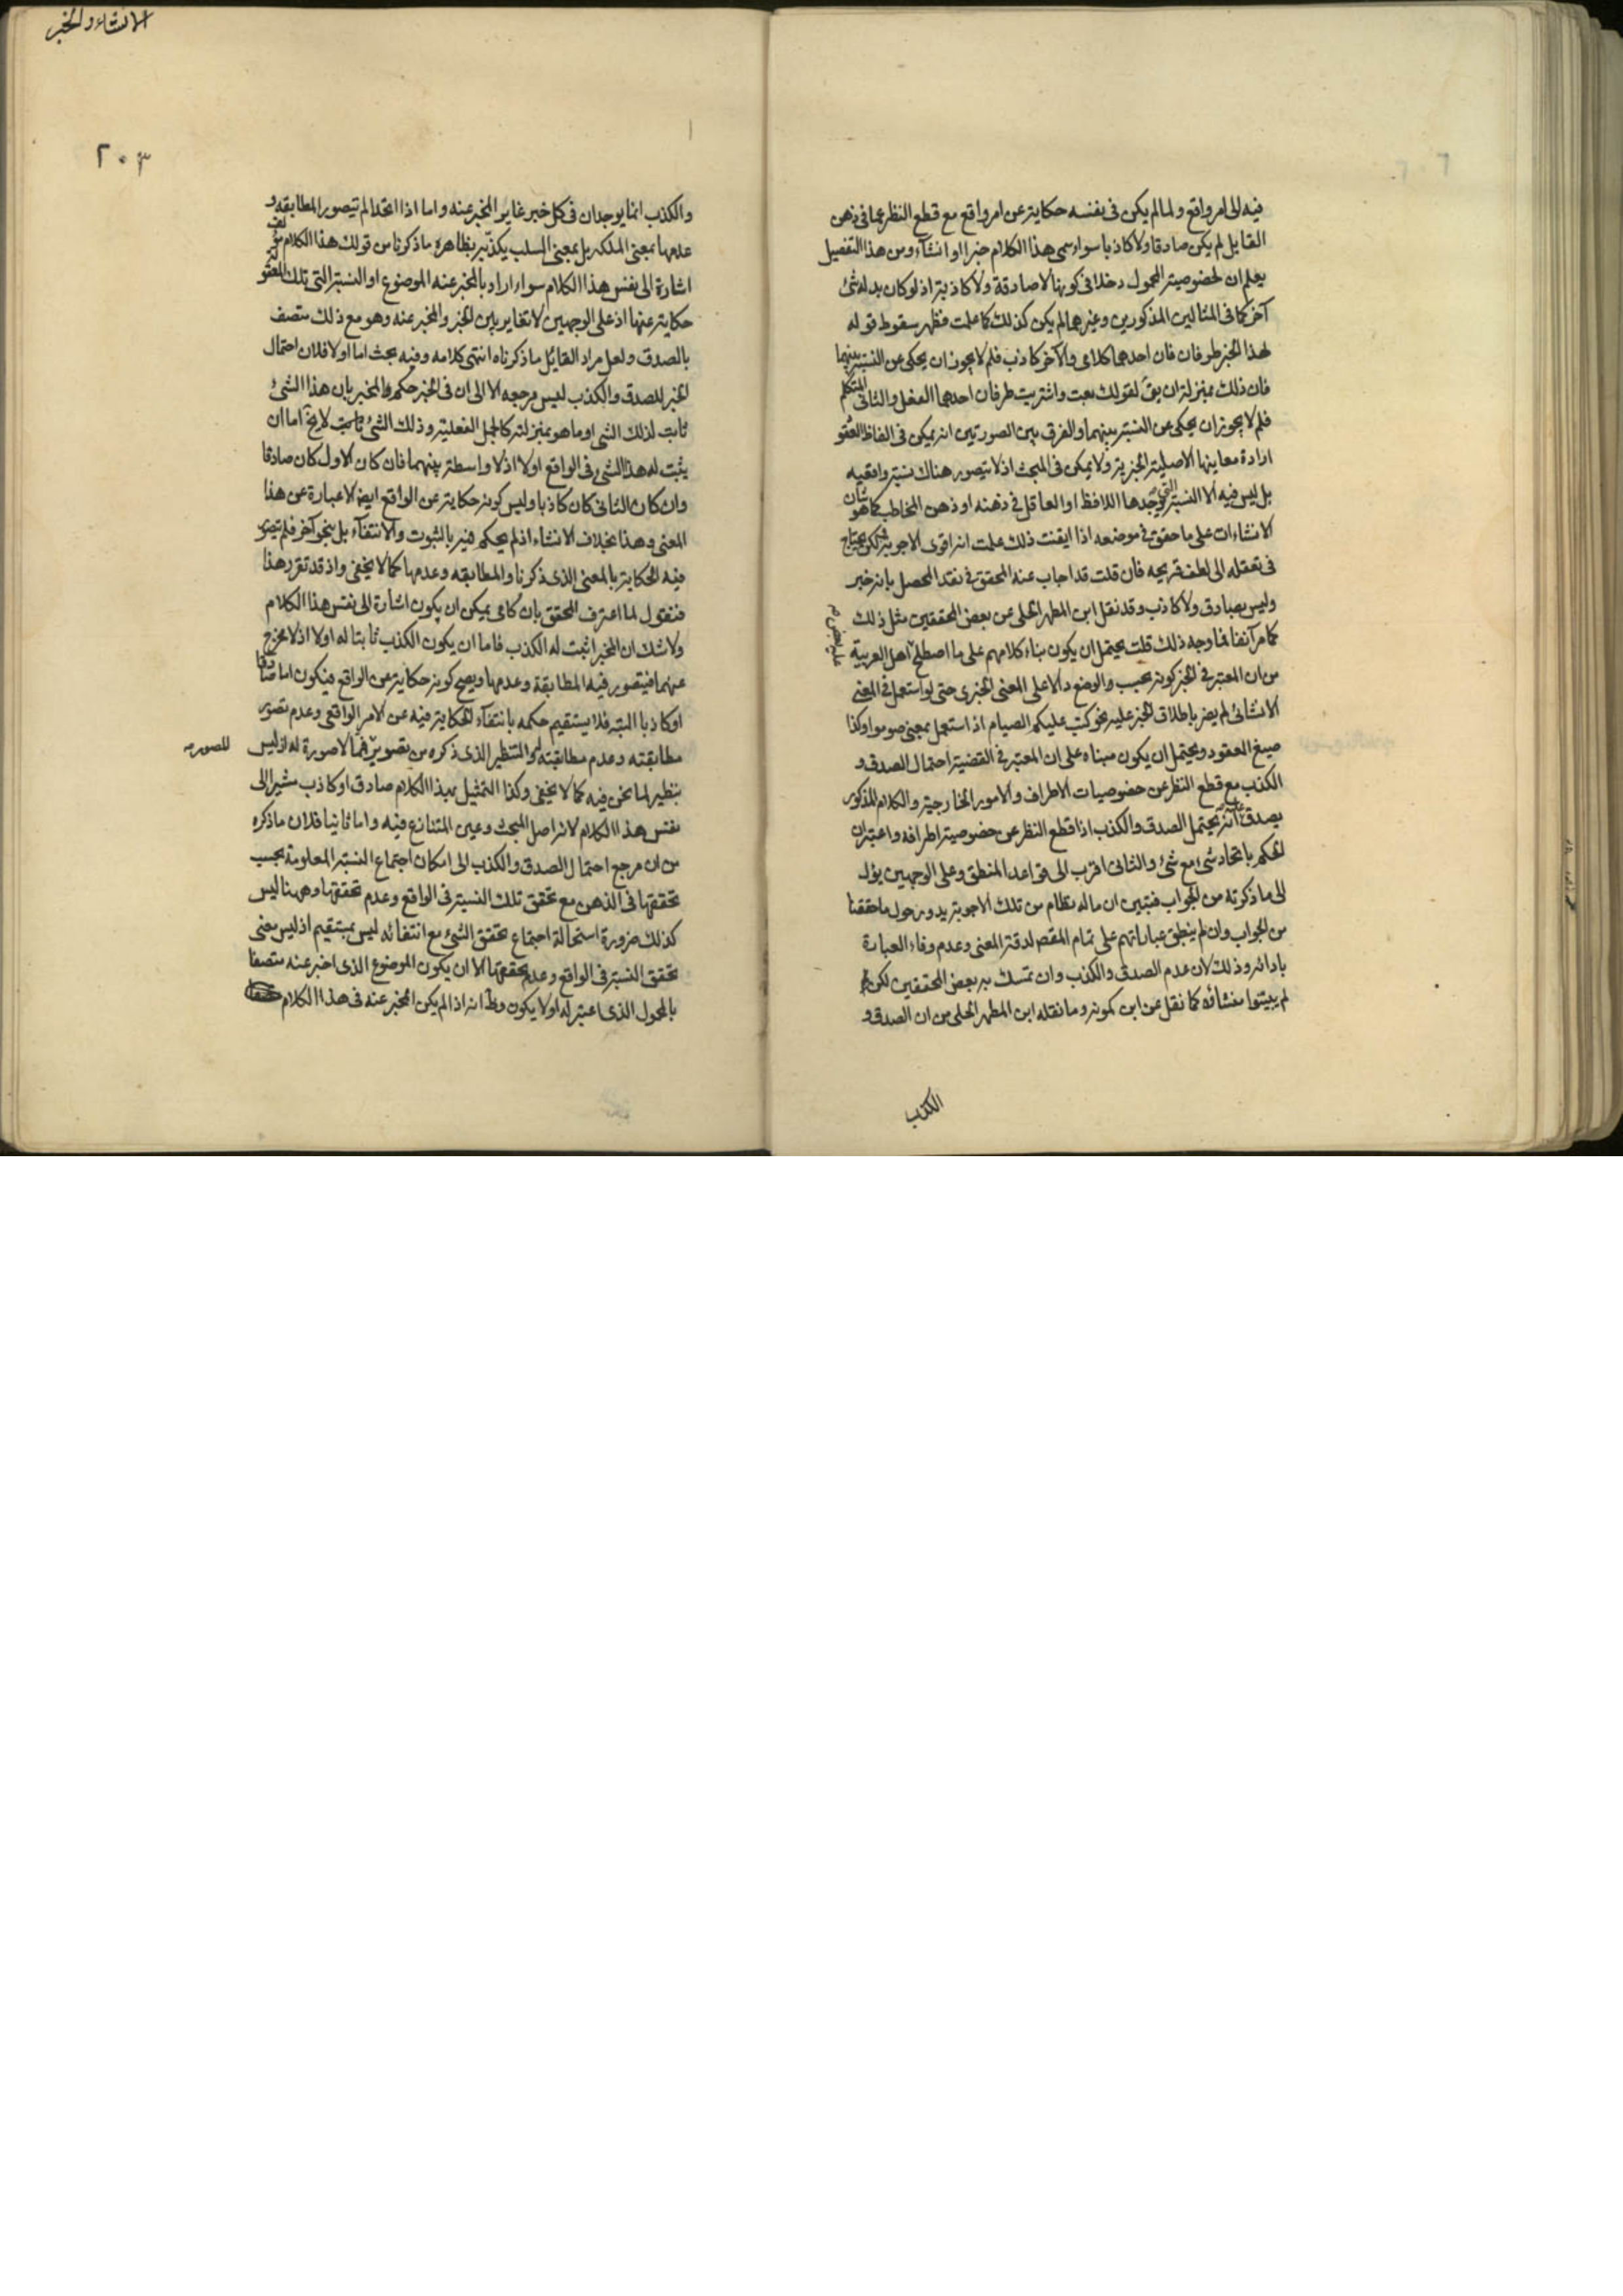 فيه الى امر واقع ولما لم يكن فى نفسه حكاية عن امر واقع مع قطع النظر عما فى ذهن
القايل لم يكن صادقا ولا كاذبا سواء سمى هذا الكلام خبرا او انشاء ومن هذا التفصيل
يعلم ان لخصوصية المحمول دخلا فى كونها لا صادقة ولا كاذبة اذ لو كان بدله شئ
آخر كما فى المثالين المذكورين وغيرهما لم يكن كذلك كما علمت فظهر سقوط قوله
لهذا الخبر طرفان فان احدهما كلامى والآخر كاذب فلم لا يجوز ان يحكى عن النسبة بينهما
فان ذلك بمنزلة ان يق لقولك بعت واشتريت طرفان احدهما الفعل والثانى المتكلم
فلم لا يجوز ان يحكى عن النسبة بينهما والفرق بين الصورتين انه يمكن فى الفاظ العقو
ارادة معاينها الاصلية الخبرية ولا يمكن فى المبحث اذ لا يتصور هناك نسبة واقعيه
بل ليس فيه الا النسبة التى يوجدها اللافظ او العاقل فى ذهنه او ذهن المخاطب كما هو شان
الانشاءات على ما حقق فى موضعه اذا ايقنت ذلك علمت انه اقوى الاجوبة لكن يحتاج
فى تعقله الى لطف قريحه فان قلت قد اجاب عنه المحقق فى نقد المحصل بانه خبر
وليس بصادق ولا كاذب وقد نقل ابن المطهر الحلى عن بعض المحققين مثل ذلك
كما مر آنفا فما وجه ذلك قلت يحتمل ان يكون بناء كلامهم على ما اصطلح اهل العربية
من ان المعتبر فى الخبر كونه بحسب الوضع دالا على المعنى الخبرى حتى لو استعمل فى المعنى
الانشائى لم يضر باطلاق الخبر عليه نحو كتب عليكم الصيام اذ استعمل بمعنى صوموا وكذا
صيغ العقود ويحتمل ان يكون مبناه على ان المعتبر فى القضية احتمال الصدق و
الكذب مع قطع النظر عن خصوصيات الاطراف والامور الخارجية والكلام المذكور
يصدق عليه انه يحتمل الصدق والكذب اذا قطع النظر عن خصوصية اطرافه واعتبر ان
الحكم باتحاد شئ مع شئ والثانى اقرب الى قواعد المنطق وعلى الوجهين يؤل
الى ما ذكرته من الجواب فتبين ان ما له نظام من تلك الاجوبة يدور حول ما حققنا
من الجواب وان لم ينطبق عباراتهم على تمام المقصد لدقة المعنى وعدم وفاء العبارة
بادائه وذلك لان عدم الصدق والكذب وان تمسك به بعض المحققين لكن
لم يبينوا منشائه كما نقل عن ابن كمونه وما نقله ابن المطهر الحلى من ان الصدق و
الكذب
الانشاء والخبر
٢٠٣
والكذب انما يوجدان فى كل خبر غاير المخبر عنه واما اذا اتحدا لم تيصور المطابقه و
عدمها بمعنى الملكه بل بمعنى السلب يكذبه بظاهره ما ذكرنا من قولك هذا الكلام
اشارة الى نفس هذا الكلام سواء اراد بالمخبر عنه الموضوع او النسبة التى تلك
حكاية عنها اذ على الوجهين لا تغاير بين الخبر والمخبر عنه وهو مع ذلك متصف
بالصدق ولعل مراد القائل ما ذكرناه انتهى كلامه وفيه بحث اما اولا فلان احتمال
الخبر للصدق والكذب ليس مرجعه الا الى ان فى الخبر حكم المخبر بان هذا الشئ
ثابت لذلك الشى او ما هو بمنزلته كالجمل الفعلية وذلك الشئ ثابت لا يخ اما ان
يثبت له هذا الشى فى الواقع اولا اذ لا واسطة بينهما فان كان الاول كان صادقا
وان كان الثانى كان كاذبا وليس كونه حكاية عن الواقع ايضا الا عبارة عن هذا
المعنى وهذا بخلاف الانشاء اذ لم يحكم فيه بالثبوت والانتفاء بل بنحو آخر فلم تصور
فيه الحكاية بالمعنى الذى ذكرنا والمطابقه وعدمها كما لا يخفى واذ قد تقرر هذا
فنقول لما اعترف المحقق بان كلامى يمكن ان يكون اشارة الى نفس هذا الكلام
ولا شك ان المخبر اثبت له الكذب فاما ان يكون الكذب ثابتا له اولا اذ لا مخرج
عنهما فيتصور فيه المطابقة وعدمها ويصح كونه حكاية عن الواقع فيكون اما صادقا
او كاذبا البته فلا يستقيم حكمه بانتفاء الحكاية فيه عن الامر الواقعى وعدم تصور
مطابقته وعدم مطابقته له والتنظير الذى ذكره من تصوير ما لا صورة له اذ ليس
للصوره
بنظير لما نحن فيه كما لا يخفى وكذا التمثيل بهذا الكلام صادق او كاذب مشيرا الى
نفس هذا الكلام لانه اصل المبحث وعين المتنازع فيه واما ثانيا فلان ما ذكره
من ان مرجع احتمال الصدق والكذب الى امكان اجتماع النسبة المعلومة بحسب
تحققها فى الذهن مع تحقق تلك النسبة فى الواقع وعدم تحققها وههنا ليس
كذلك ضرورة استحالة اجتماع تحقق الشئ مع انتفائه ليس بمستقيم اذ ليس معنى
تحقق النسبة فى الواقع وعدم تحققها الا ان يكون الموضوع الذى اخبر عنه متصفا
بالمحمول الذى اعتبر له اولا يكون وظ انه اذا لم يكن المخبر عنه فى هذا الكلام